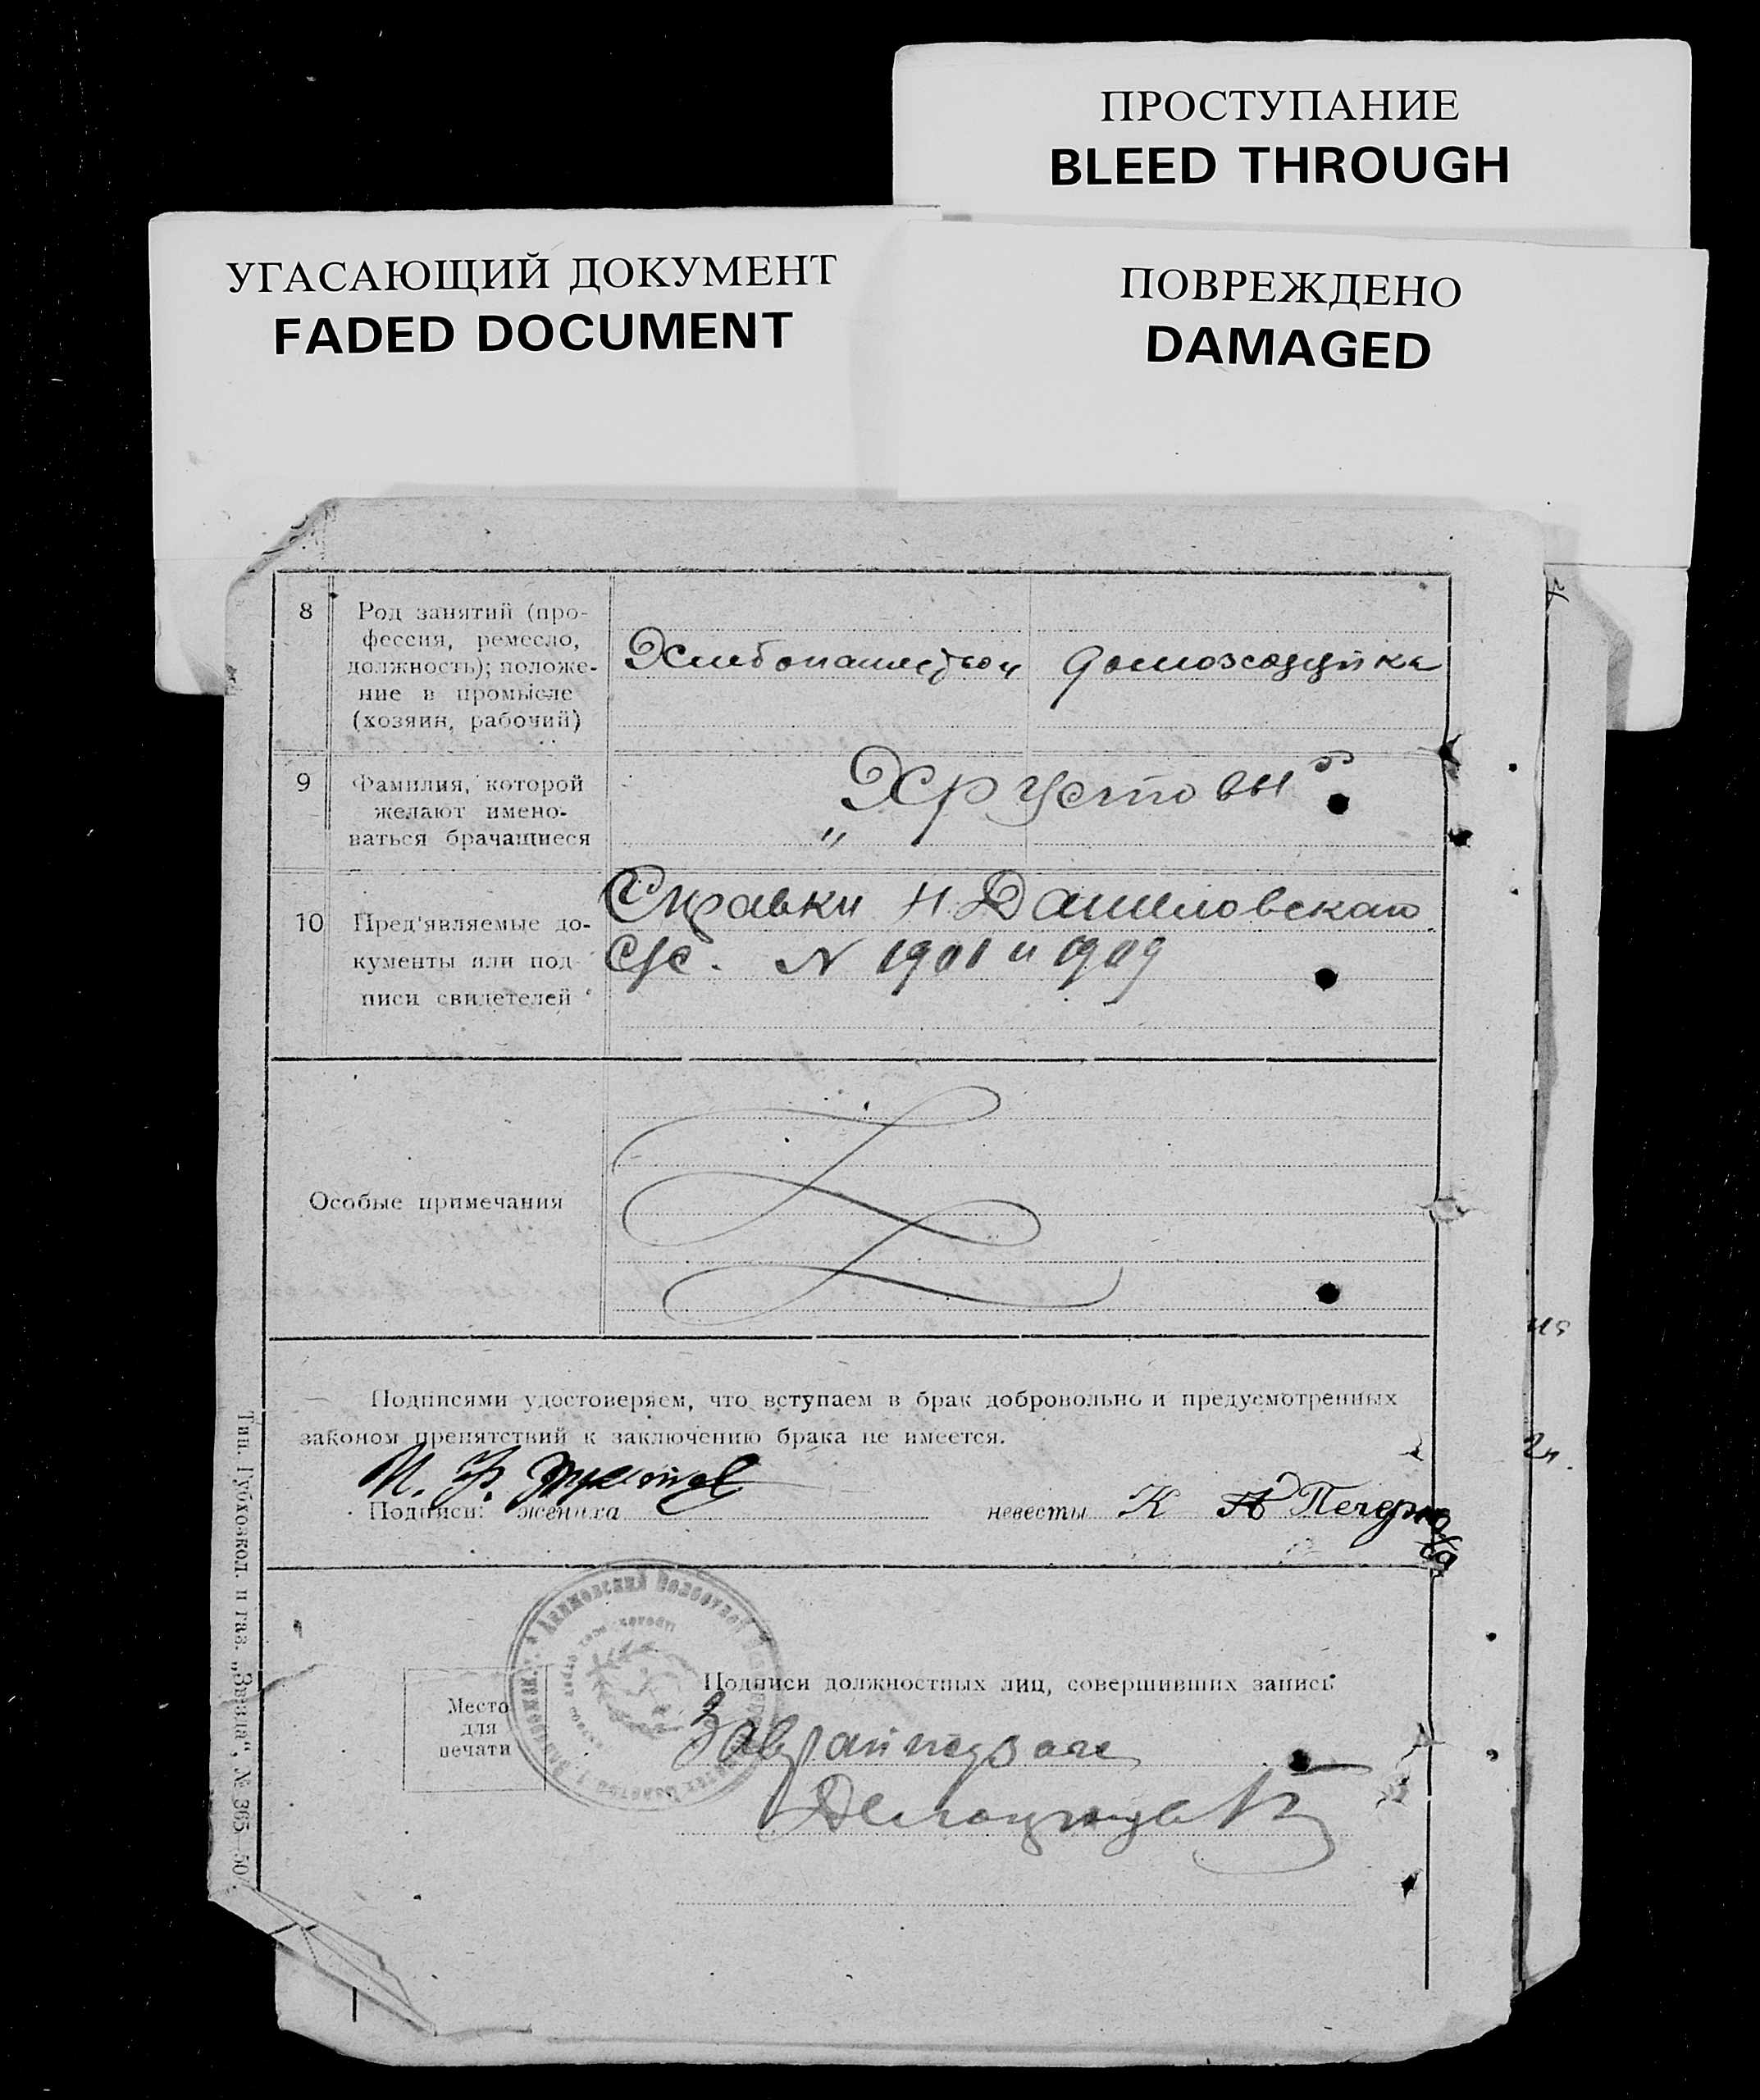 ПРОСТУПАНИЕ
BLEED THROUGH
УГАСАЮЩИЙ ДОКУМЕНТ
FADED DOCUMENT
ПОВРЕЖДЕНО
DAMAGED
8
Род занятий (про-
фессия, ремесло,
должность); положе-
ние в промысле
(хозяин, рабочий)
Хлебопашеством
домохозяйка
9
Фамилия, которой
желают имено-
ваться брачащиеся
„Хрустовы"
10
Пред'являемые до-
кументы или под-
писи свидетелей
Справки Н. Даниловскаго
С/с. N 1901 и 1909
Особые примечания
Подписями удостоверяем, что вступаем в брак добровольно и предусмотренных
законом препятствий к заключению брака не имеется.
Подписи: жениха И. Ф. Хрустов
невесты К А Печеркова
Место
для
печати
Подписи должностных лиц, совершивших запись:
Заврайподзаг
Тип. Губхозкол. и газ. „Звезда", № 365—50